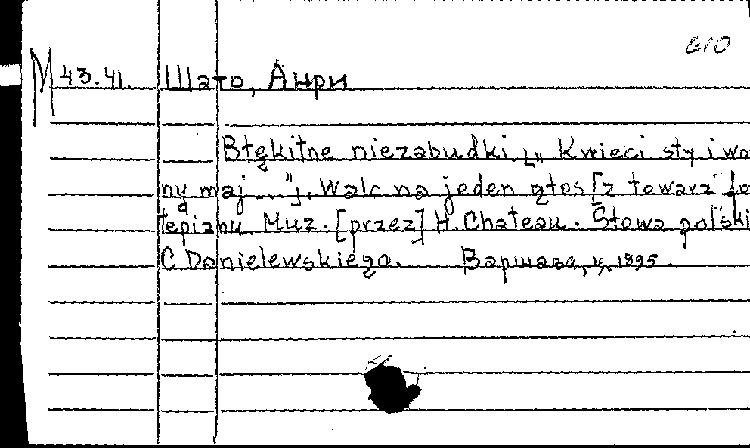 610
М 43.41 Шато, Анри
Błękitne niezabudki. [„Kwieci sty i wo
ny maj ..."]. Walc na jeden głos [z towarz fo
tepianu. Muz. [przez] H. Chateau. Słowa polski
C. Danielewskiego. Варшава, ц. 1895.